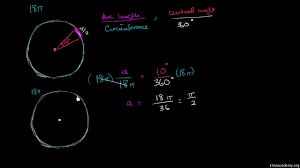 18π
Arc length
Circumference
=
central angle
360°
(18π) a/18π = 10°/360° (18π)
18π
a = 18π/36 = π/2
khanacademy.org